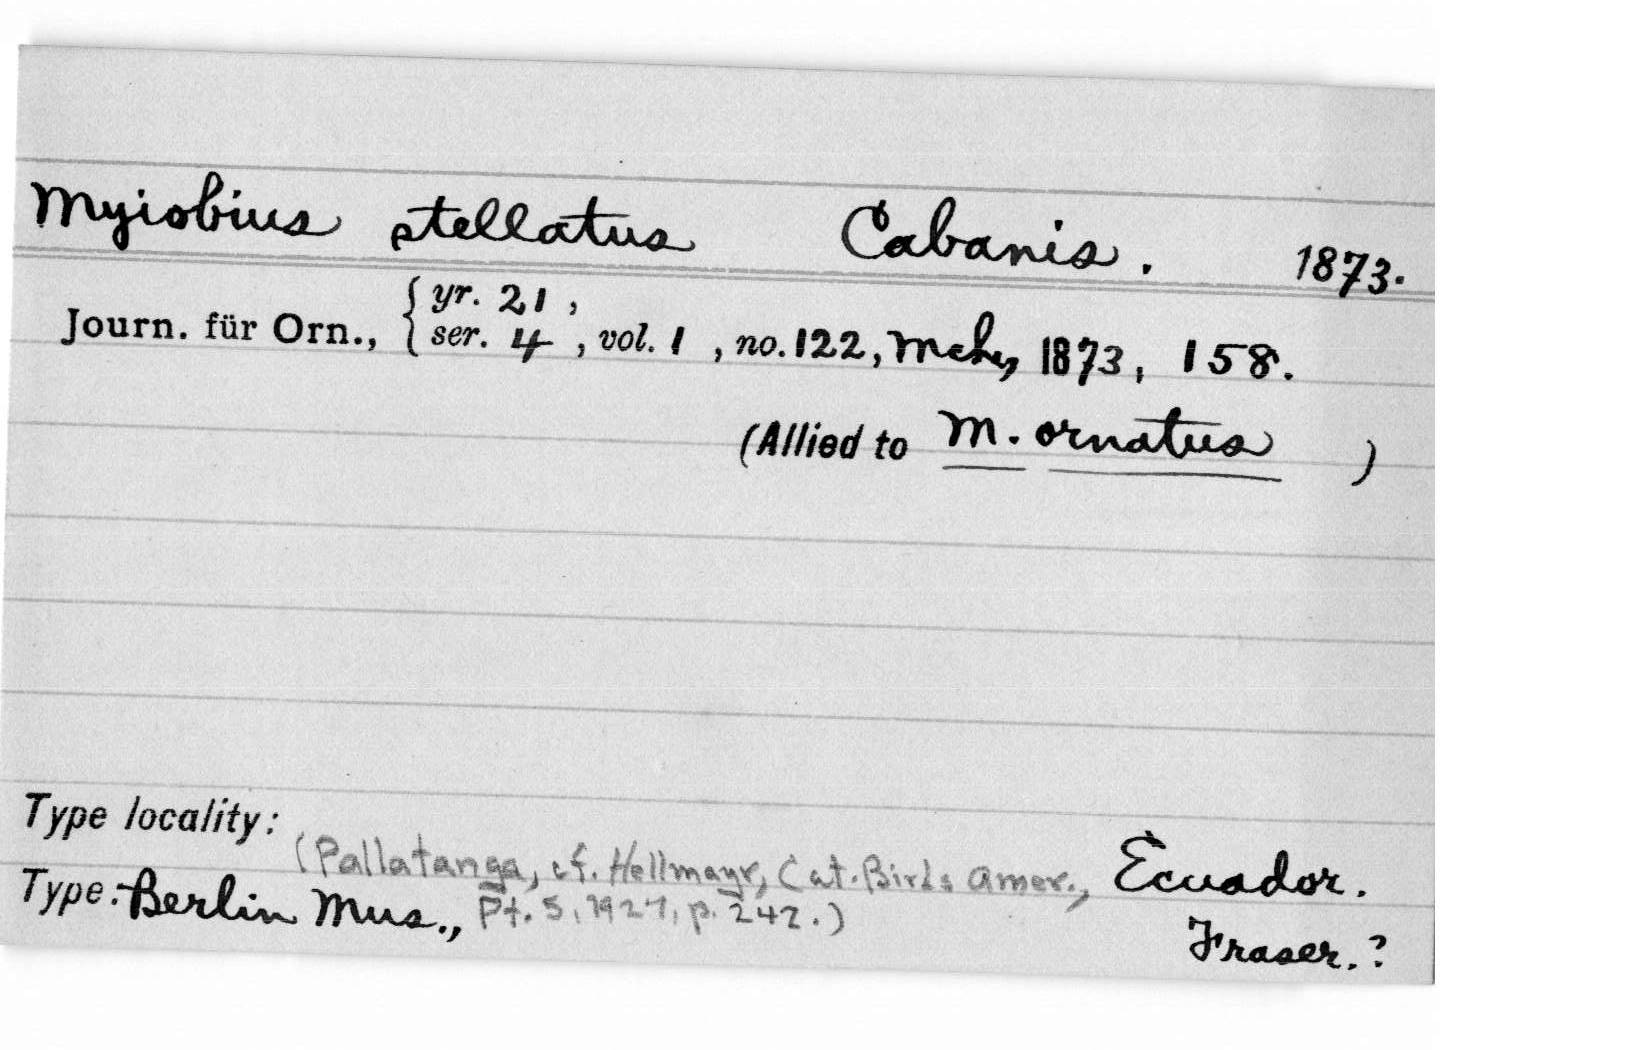 Myiobius stellatus Cabanis. 1873.
Journ. für Orn., { yr. 21, ser. 4, vol. 1, no. 122, Mch, 1873, 158.
(Allied to M. ornatus )
Type locality:
(Pallatanga, cf. Hellmayr, Cat. Birds Amer., Ecuador.
Type: Berlin Mus., Pt. 5, 1927, p. 242.)
Fraser.?